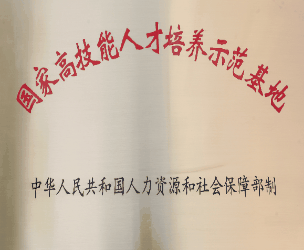 国家高技能人才培养示范基地
中华人民共和国人力资源和社会保障部制